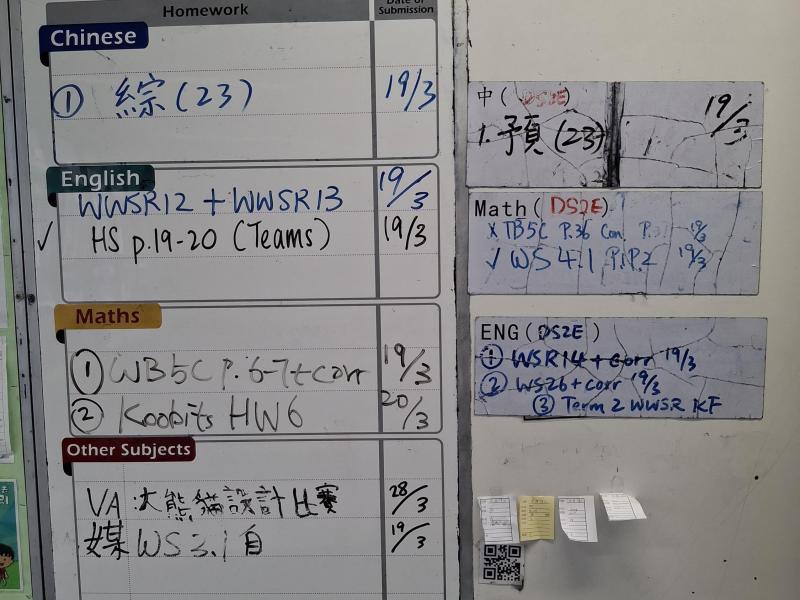 Homework
Date of Submission
Chinese
① 綜(23) 19/3
English
WWSR12 + WWSR13 19/3
✓ HS p.19-20 (Teams) 19/3
Maths
① WB5C P.6-7+corr 19/3
② Koobits HW6 20/3
Other Subjects
VA 大熊貓設計比賽 28/3
媒 WS3.1 自 19/3
中( DS2E)
1.預(23) 19/3
Math( DS2E )
x TB5C P.36 Con P. 19/3
✓ WS 4.1 P.1P.2 19/3
ENG(DS2E )
① WSR14 + corr 19/3
② WS26 + corr 19/3
③ Term 2 WWSR KF